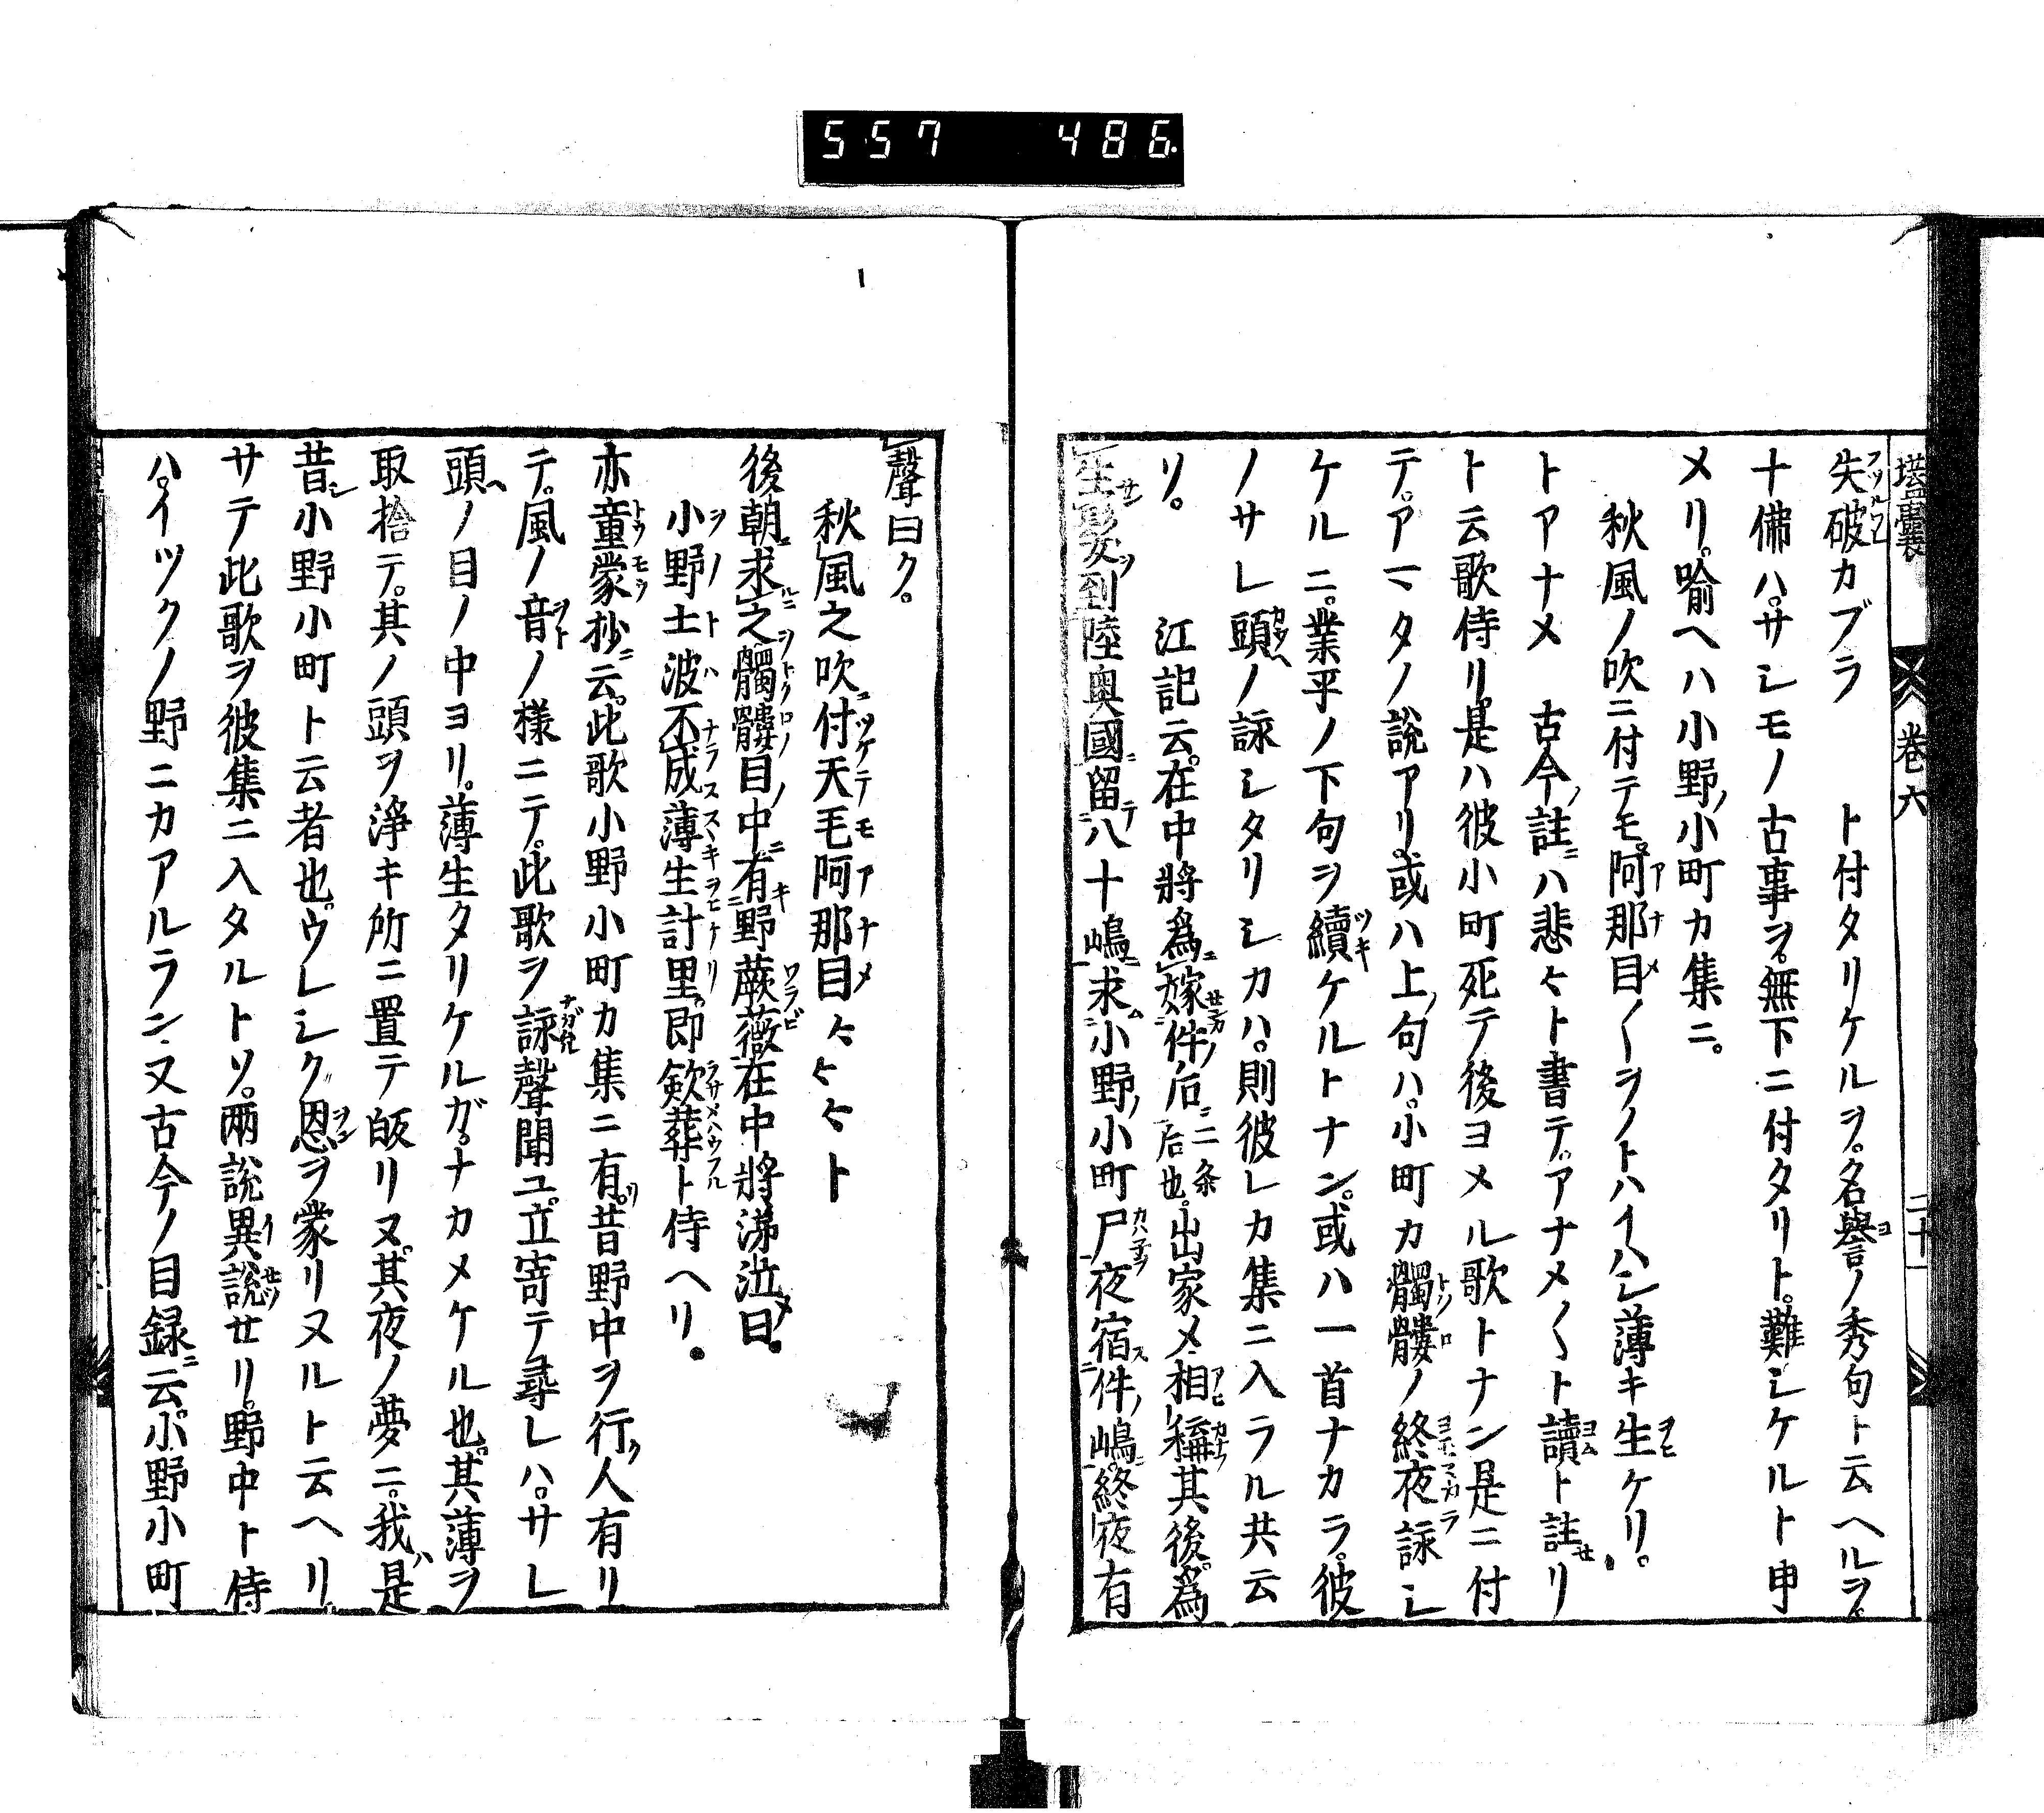 557 486
壒囊 巻六 二十一
失破カブラ ト付タリケルヲ。名譽ノ秀句ト云ヘルヲ。
十佛ハ。サシモノ古事ヲ。無下ニ付タリト。難シケルト申
メリ。喩ヘハ小野ノ小町カ集ニ。
秋風ノ吹ニ付テモ。阿那目〱ヲノトハイハシ薄キ生ケリ。
トアナメ 古今ノ註ニハ悲々ト書テ。アナメ〱ト讀ト註セリ
ト云歌侍リ。是ハ彼小町死テ後ヨメル歌トナン是ニ付
テ。アマタノ說アリ。或ハ上ノ句ハ。小町カ髑髏ノ終夜詠シ
ケルニ。業平ノ下句ヲ續ケルトナン。或ハ一首ナカラ。彼
ノサレ頭ノ詠シタリシカハ。則彼レカ集ニ入ラル共云
リ。 江記云。在中將爲嫁件ノ后ニ二条后也。出家メ相稱其後。爲
生髮ヲ到陸奥國ニ留テ八十嶋ニ求ム小野ノ小町尸夜宿ス件ノ嶋ニ。終夜有
聲曰ク。
秋風之吹ニ付天毛阿那目々々々ト
後朝ニ求ルニ之ヲ髑髏目ノ中ニ有キ野蕨薇在中將涕泣メ曰。
小野土波不成薄生計里。即斂葬ト侍ヘリ。
亦童蒙抄ニ云。此歌小野小町カ集ニ有リ。昔野中ヲ行ク人有リ
テ。風ノ音ノ樣ニテ。此歌ヲ詠聲聞ユ。立寄テ尋レハ。サレ
頭ノ目ノ中ヨリ。薄生タリケルガ。ナカメケル也。其薄ヲ
取捨テ。其ノ頭ヲ淨キ所ニ置テ皈リヌ。其夜ノ夢ニ。我ハ是
昔シ小野小町ト云者也。ウレシク恩ヲ蒙リヌルト云ヘリ。
サテ此歌ヲ彼集ニ入タルトソ。兩說異說セリ。野中ト侍
ハ。イツクノ野ニカアルラン。又古今ノ目録ニ云。小野小町